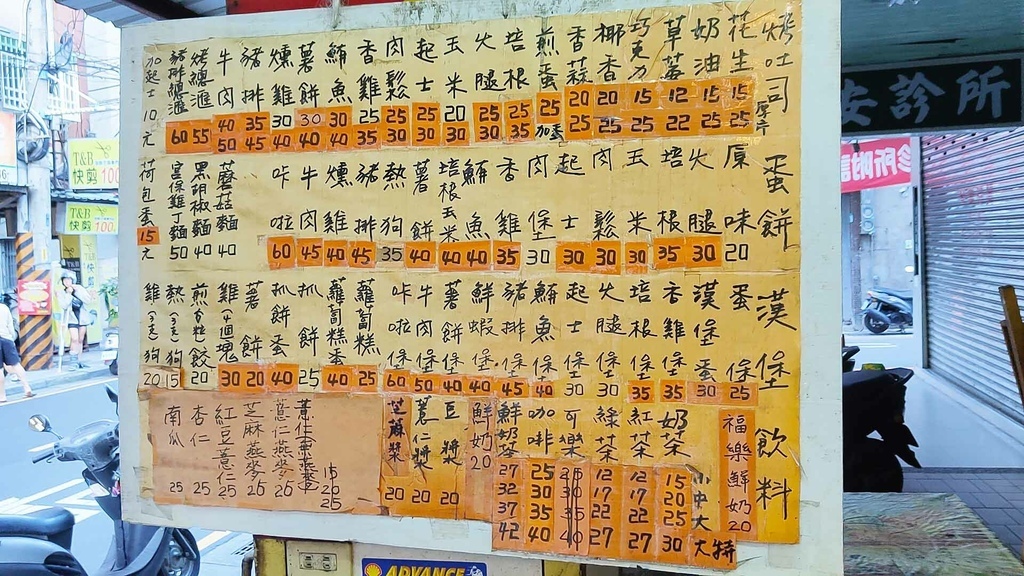 烤吐司 厚片
花生 15 25
奶油 15 25
草莓 12 22
巧克力 15 25
椰香 20 25
香蒜 20 25
煎蛋 25 加蛋
培根 25 35
火腿 25 30
玉米 20 30
起士 25 30
肉鬆 25 30
香雞 25 35
鮪魚 30 40
薯餅 30 40
燻雞 30 40
豬排 35 45
牛肉 40 50
烤總匯 55
豬總匯 60
加起士10元
蛋餅
原味 20
火腿 30
培根 35
玉米 30
肉鬆 30
起士 30
肉堡 30
香雞 35
鮪魚 40
培根玉米 40
薯餅 40
熱狗 35
豬排 45
燻雞 40
牛肉 45
咔啦 60
蘑菇麵 40
黑胡椒麵 40
宮保雞丁麵 50
荷包蛋 15元
漢堡
蛋堡 25
漢堡蛋 30
香雞堡 35
培根堡 35
火腿堡 30
起士堡 30
鮪魚堡 40
豬排堡 45
鮮蝦堡 40
薯餅堡 40
牛肉堡 50
咔啦堡 60
蘿蔔糕 25
蘿蔔糕蛋 40
抓餅 25
抓餅蛋 40
薯餅 20
雞塊 30
煎餃 20
熱狗 15
雞狗 20
飲料
福樂鮮奶20
小 中 大 大特
奶茶 15 20 25 30
紅茶 12 17 22 27
綠茶 12 17 22 27
可樂
咖啡 25 30 35 40
鮮奶茶 27 32 37 42
鮮奶 20
豆漿 20
薏仁漿 20
芝麻漿 20
薏仁 15 20 25
薏仁燕麥 20
芝麻燕麥 20
紅豆薏仁 25
杏仁 25
南瓜 25
安診所
診所附設
T&B
快剪100
T&B
快剪100
ADVANCE